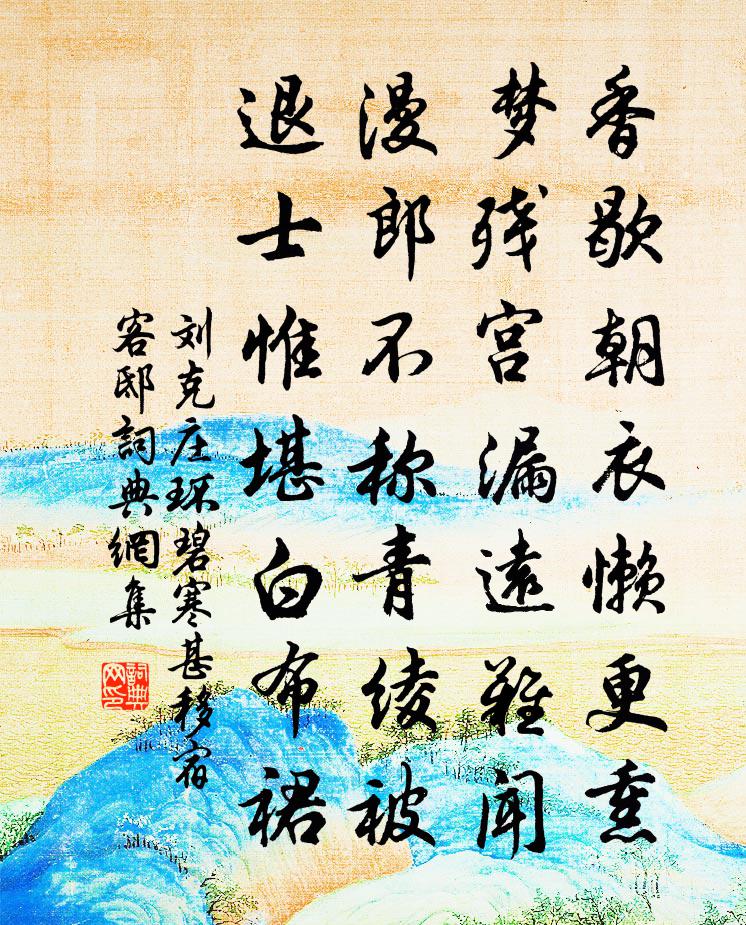 香歇朝衣懒更熏
梦残宫漏遠難闻
漫郎不称青绫被
退士惟堪白布裙
刘克庄环碧寒甚移宿
客邸詞典網集
詞典
网印